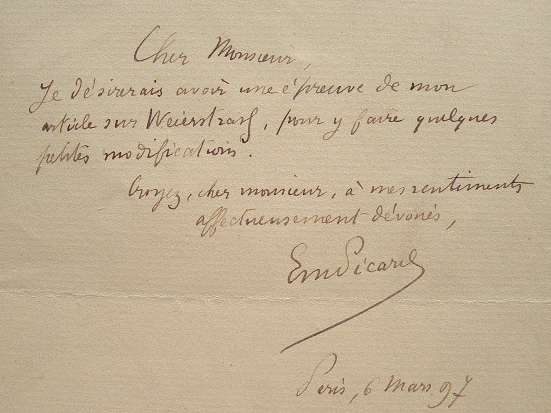 Cher Monsieur,
Je désirerais avoir une épreuve de mon
article sur Weierstraß, pour y faire quelques
petites modifications.
Croyez, cher monsieur, à mes sentiments
affectueusement dévoués,
Em Picard
Paris, 6 Mars 97